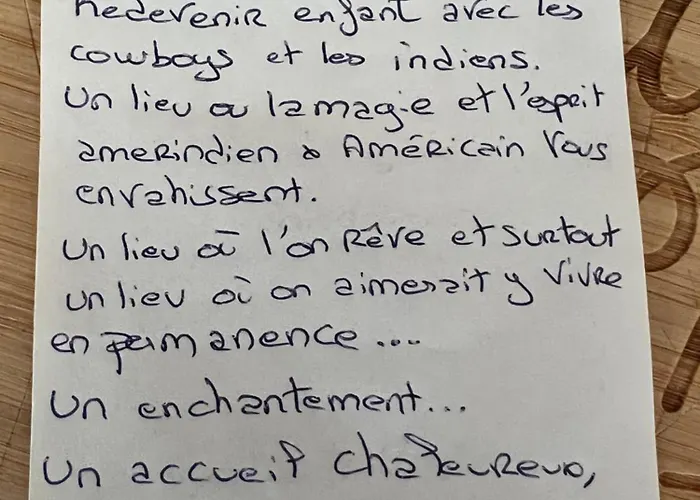 Redevenir enfant avec les
cowboys et les indiens.
Un lieu ou la magie et l'esprit
amerindien & Américain Vous
envahissent.
Un lieu où l'on Rêve et surtout
un lieu où on aimerait y vivre
en permanence....
Un enchantement...
Un accueil chaleureux,